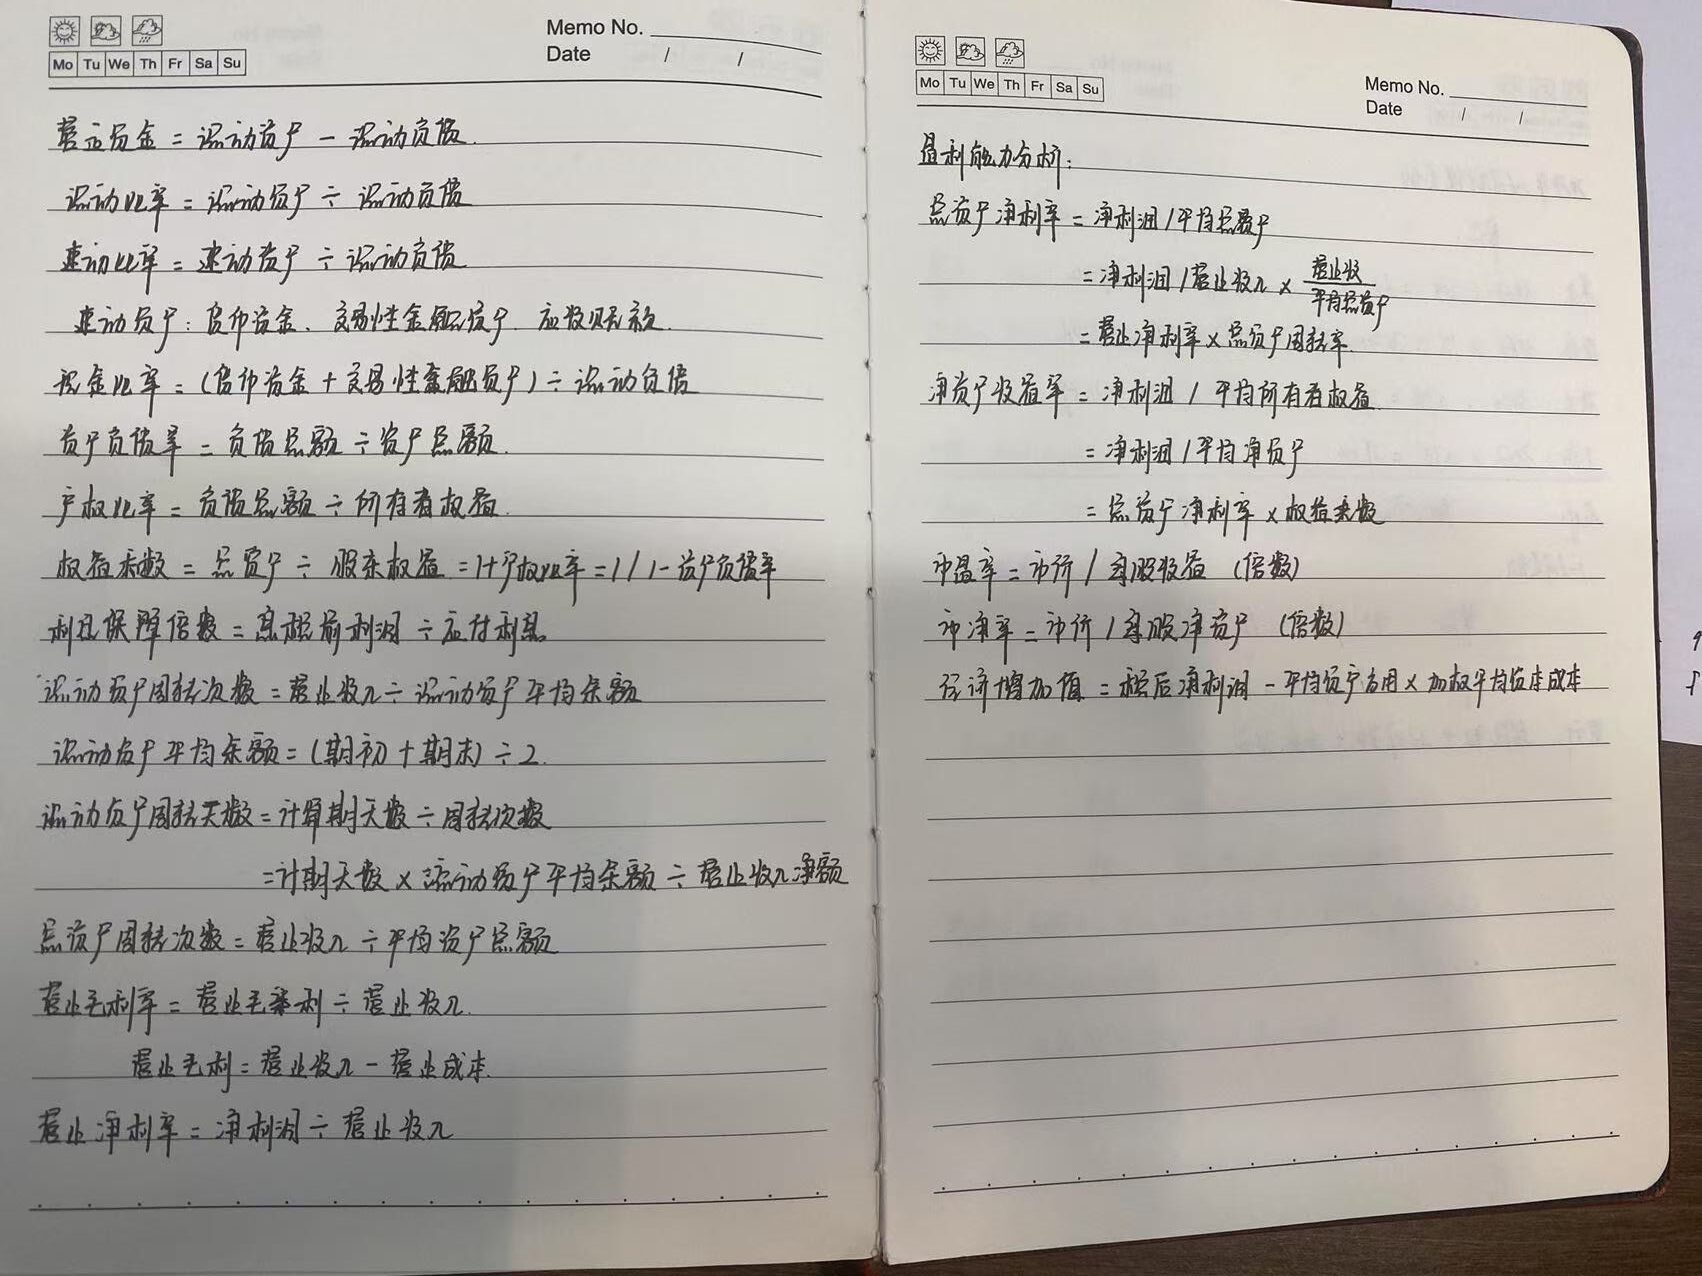 Memo No.
Date / /
Mo Tu We Th Fr Sa Su
营运资金 = 流动资产 - 流动负债.
流动比率 = 流动资产 ÷ 流动负债
速动比率 = 速动资产 ÷ 流动负债
速动资产: 货币资金、交易性金融资产、应收账款.
现金比率 = (货币资金 + 交易性金融资产) ÷ 流动负债
资产负债率 = 负债总额 ÷ 资产总额.
产权比率 = 负债总额 ÷ 所有者权益.
权益乘数 = 总资产 ÷ 股东权益 = 1+产权比率 = 1 / 1-资产负债率
利息保障倍数 = 息税前利润 ÷ 应付利息.
流动资产周转次数 = 营业收入 ÷ 流动资产平均余额
流动资产平均余额 = (期初 + 期末) ÷ 2.
流动资产周转天数 = 计算期天数 ÷ 周转次数
= 计期天数 × 流动资产平均余额 ÷ 营业收入净额
总资产周转次数 = 营业收入 ÷ 平均资产总额
营业毛利率 = 营业毛利 ÷ 营业收入.
营业毛利 = 营业收入 - 营业成本.
营业净利率 = 净利润 ÷ 营业收入
Mo Tu We Th Fr Sa Su
Memo No.
Date / /
盈利能力分析:
总资产净利率 = 净利润 / 平均总资产
= 净利润 / 营业收入 × 营业收/平均总资产
= 营业净利率 × 总资产周转率.
净资产收益率 = 净利润 / 平均所有者权益
= 净利润 / 平均净资产
= 总资产净利率 × 权益乘数
市盈率 = 市价 / 每股收益 (倍数)
市净率 = 市价 / 每股净资产 (倍数)
经济增加值 = 税后净利润 - 平均资产占用 × 加权平均资本成本